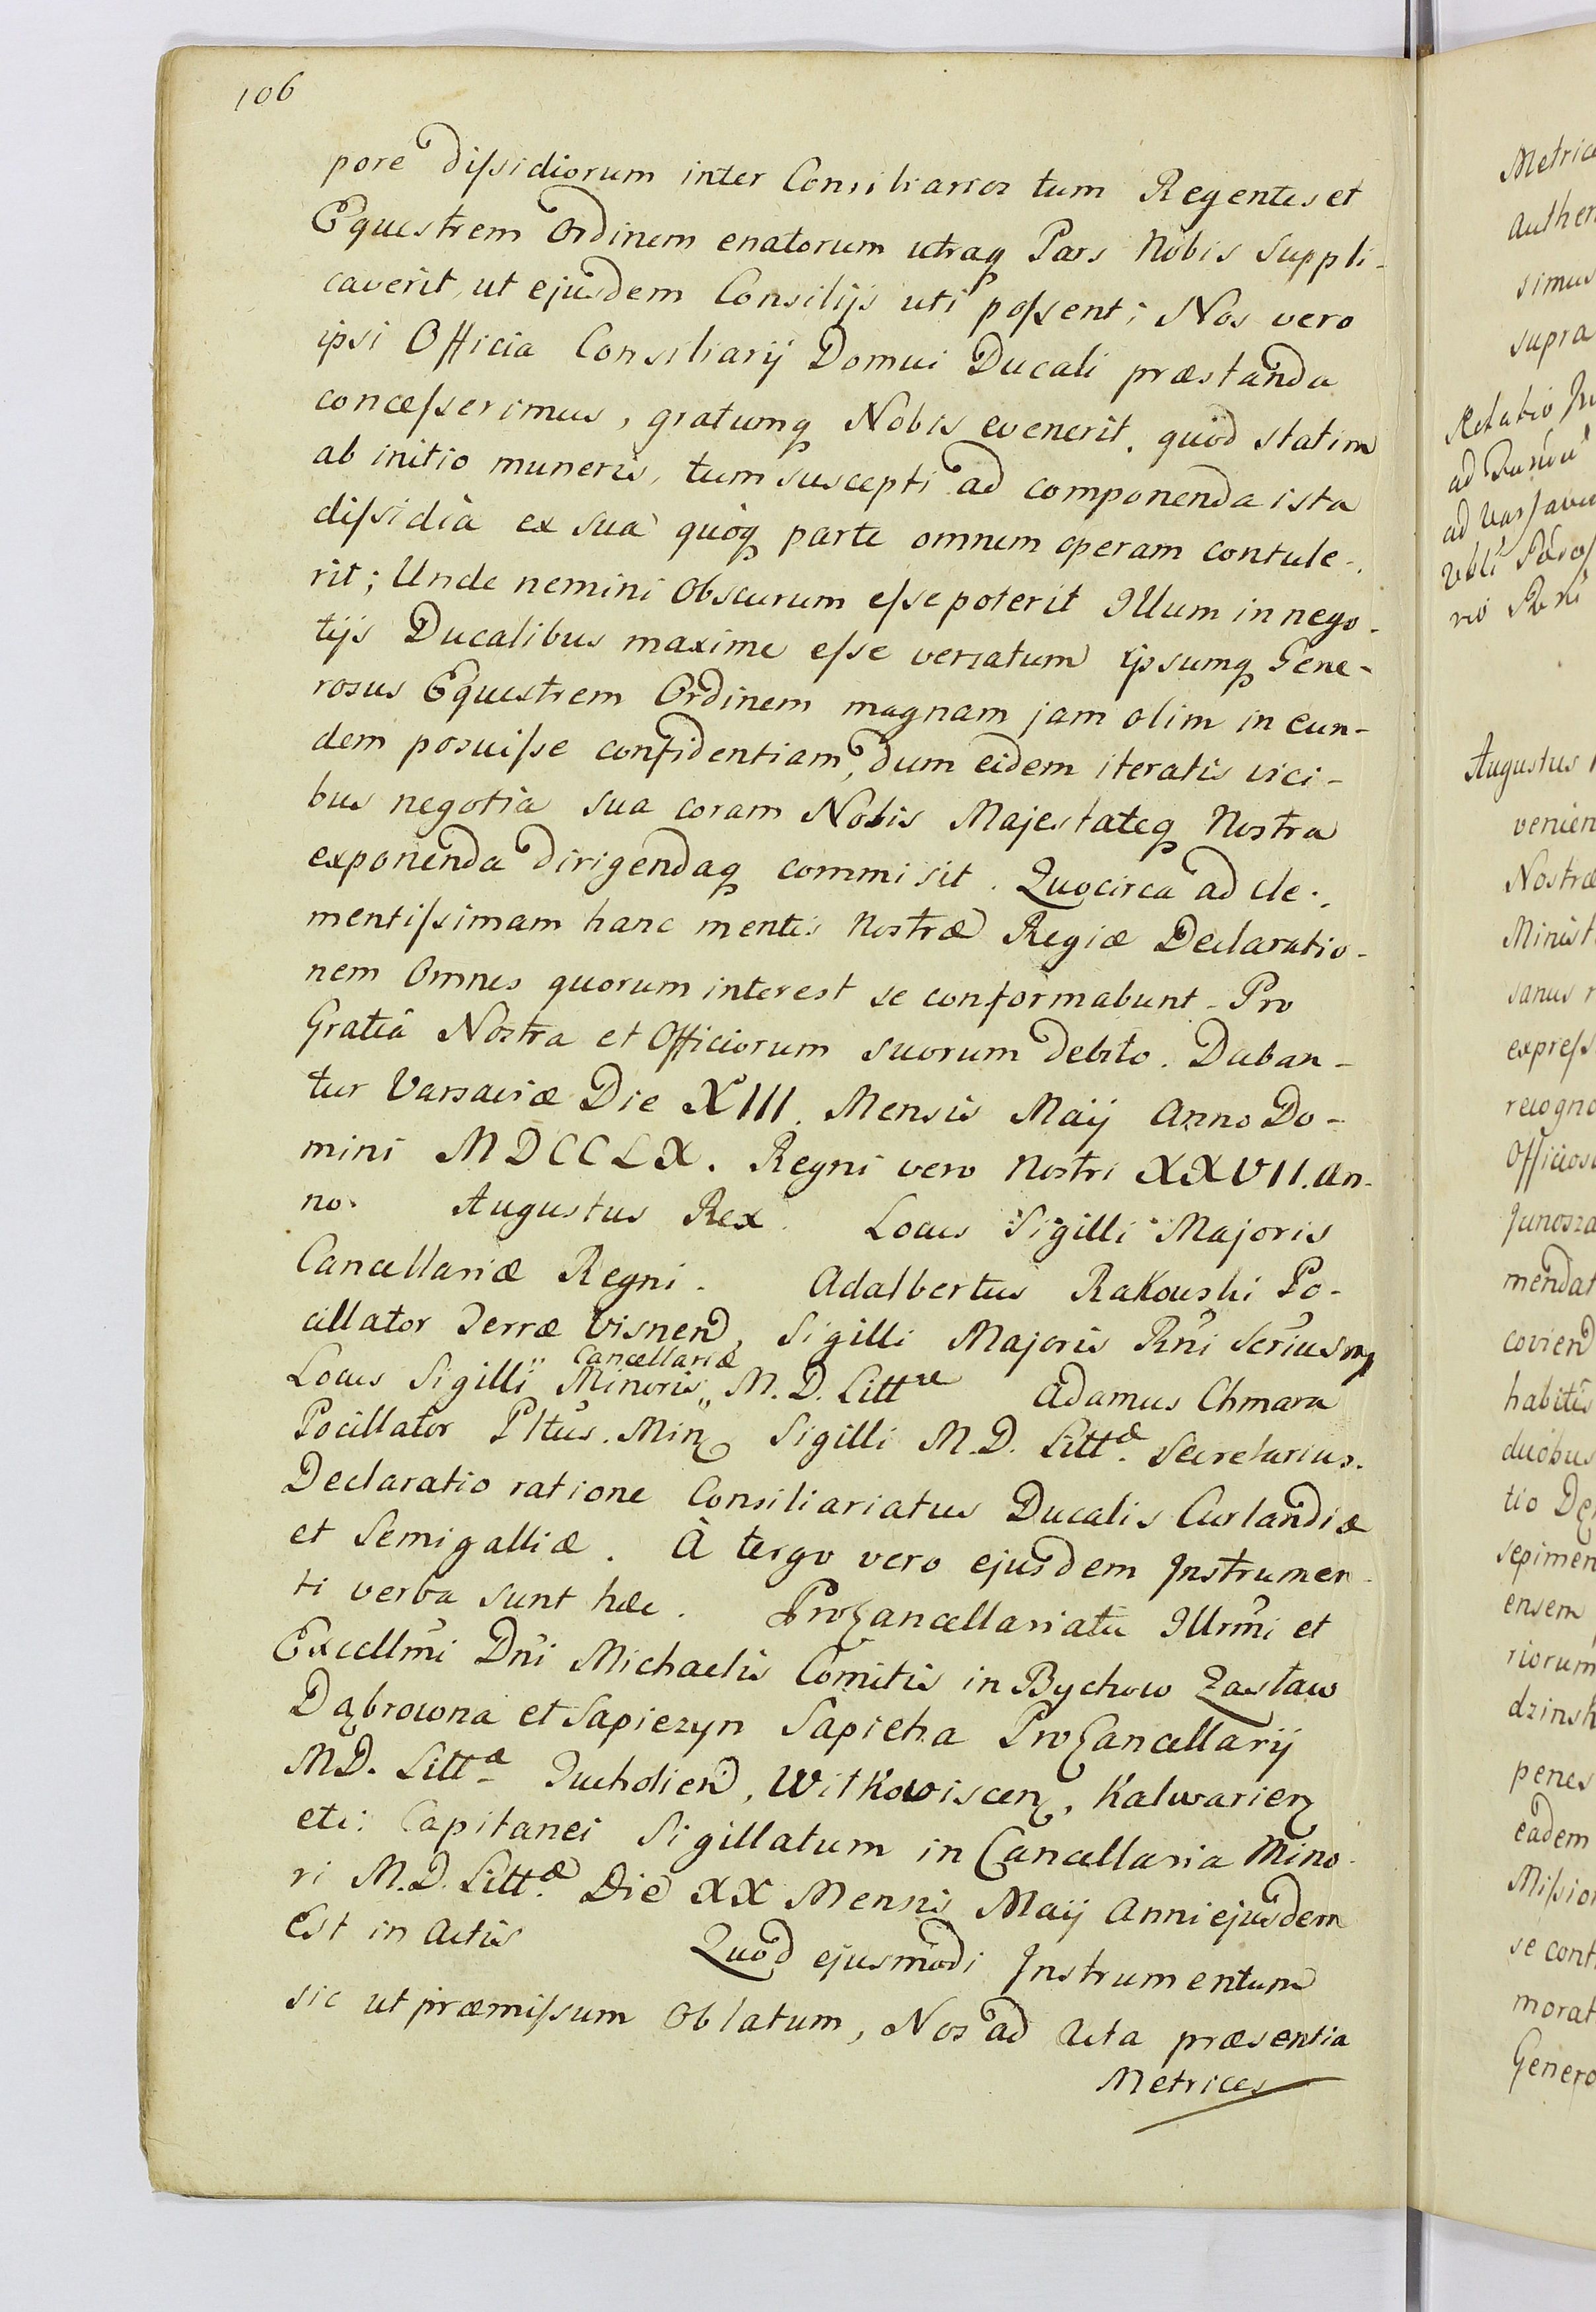 106
pore dissidiorum inter Consiliarios tum Regentes et
Equestrem Ordinem enatorum utraq Pars Nobis Suppli-
caverit, ut ejusdem Consilijs uti possent; Nos vero
ipsi Officia Consiliarij Domui Ducali præstanda
concesserimus, gratumq Nobis evenerit, quod statim
ab initio muneris, tum suscepti ad componenda ista
dissidia ex sua quoq parte omnem operam contule-
rit; Unde nemini Obscurum esse poterit Illum in nego-
tijs Ducalibus maxime esse versatum ipsumq Gene-
rosus Equestrem Ordinem magnam jam olim in eun-
dem posuisse confidentiam, dum eidem iteratis vici-
bus negotia sua coram Nobis Majestateq Nostra
exponenda dirigendaq commisit. Quocirca ad cle-
mentissimam hanc mentis Nostræ Regiæ Declaratio-
nem Omnes quorum interest se conformabunt. Pro
Gratia Nostra et Officiorum suorum debito. Daban-
tur Varsaviæ Die XIII. Mensis Maij Anno Do-
mini MDCCLX. Regni vero Nostri XXVII. An-
no. Augustus Rex. Locus Sigilli Majoris
Cancellariæ Regni. Adalbertus Rakowski Po-
cillator Terræ Visnend, Sigilli Majoris Rñi Scrius mp
Cancellariæ
Locus Sigilli Minoris M. D. Littæ Adamus Chmara
Pocillator Pltus. Min Sigilli M.D. Littæ. Secretarius.
Declaratio ratione Consiliariatus Ducalis Curlandiæ
et Semigalliæ. À tergo vero ejusdem Instrumen-
ti verba sunt hæc. ProCancellariatu Illrmi et
Excellmi Dni Michaelis Comitis in Bychow Zasław
Dąbrowna et Sapiezyn Sapieha ProCancellarij
MD. Littæ Tucholien, Wilkowiscen, Kalwarien
etc: Capitanei Sigillatum in Cancellaria Mino-
ri M.D. Littæ. Die XX Mensis Maij Anni ejusdem
Est in Actis Quod ejusmodi Instrumentum
sic ut præmissum Oblatum, Nos ad Acta præsentia
Metrices
Augustus
venien
Nostræ
Minist
sanus
express
recogno
mendat
coviend
habitis
duobus
sepimen
ensem
riorum
penes
eadem
Mission
se cont
morat
Genero